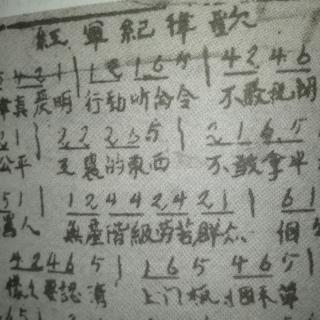 紅軍紀律歌
4 2 1 | 1 2 1 6 5 | 4 2 4 6
律真嚴明 行動听命令 不敢
2 1 | 2 2 2 3 5 | 2 1 6 5
公平 工農的東西 不敢拿半
5 1 | 1 2 4 4 2 4 2 1 | 6 1
人 無產階級劳苦群众 個
4 2 4 6 5 | 1 6 5 4 6 5 |
要認清 上门板 捆禾